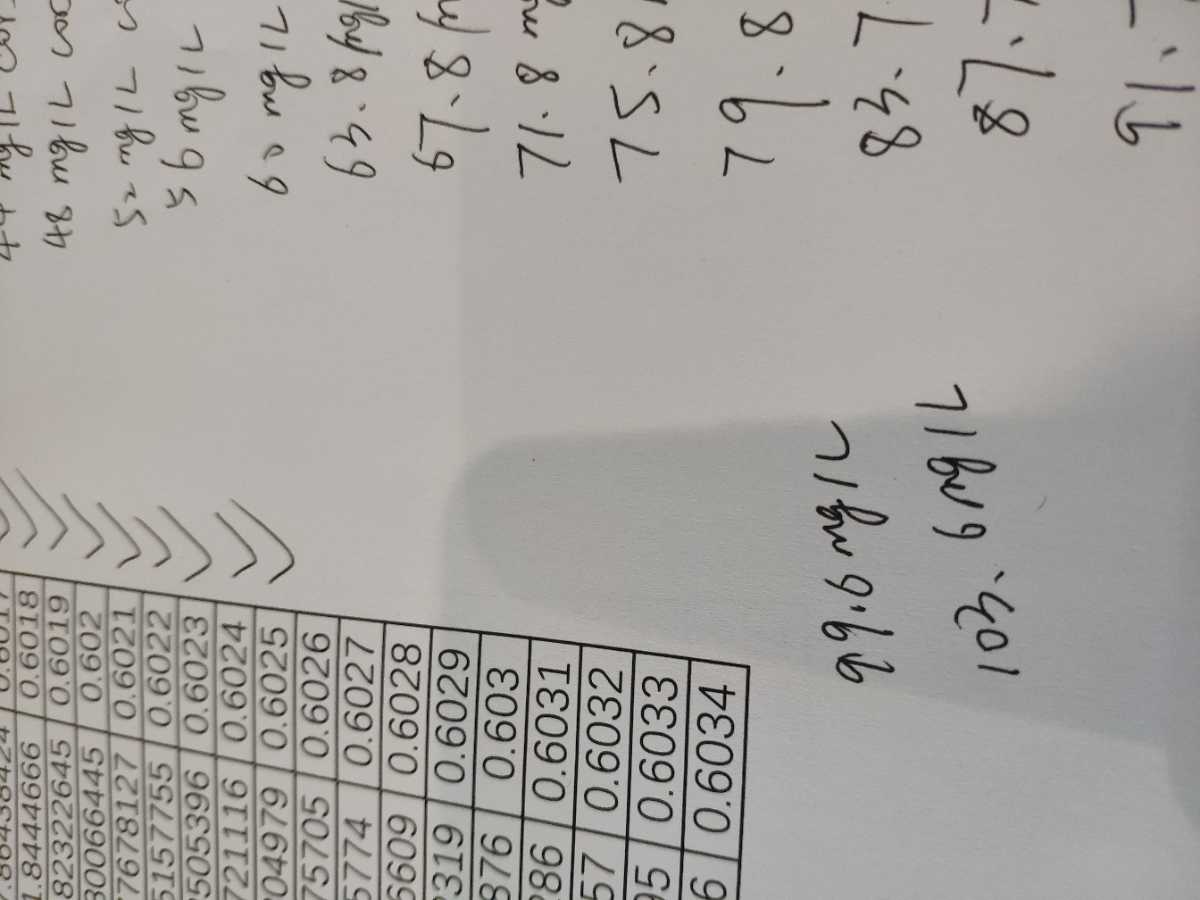 0.6017
1.84444666 0.6018
82322645 0.6019
80066445 0.602
77678127 0.6021
5157755 0.6022
5053396 0.6023
721116 0.6024
04979 0.6025
75705 0.6026
5774 0.6027
6609 0.6028
319 0.6029
876 0.603
286 0.6031
57 0.6032
95 0.6033
6 0.6034
44 mg/L
48 mg/L
52 mg/L
56 mg/L
60 mg/L
63.8
67.8
71.8
75.8
79.8
83.7
87.7
91.
99.6 mg/L
103.6 mg/L